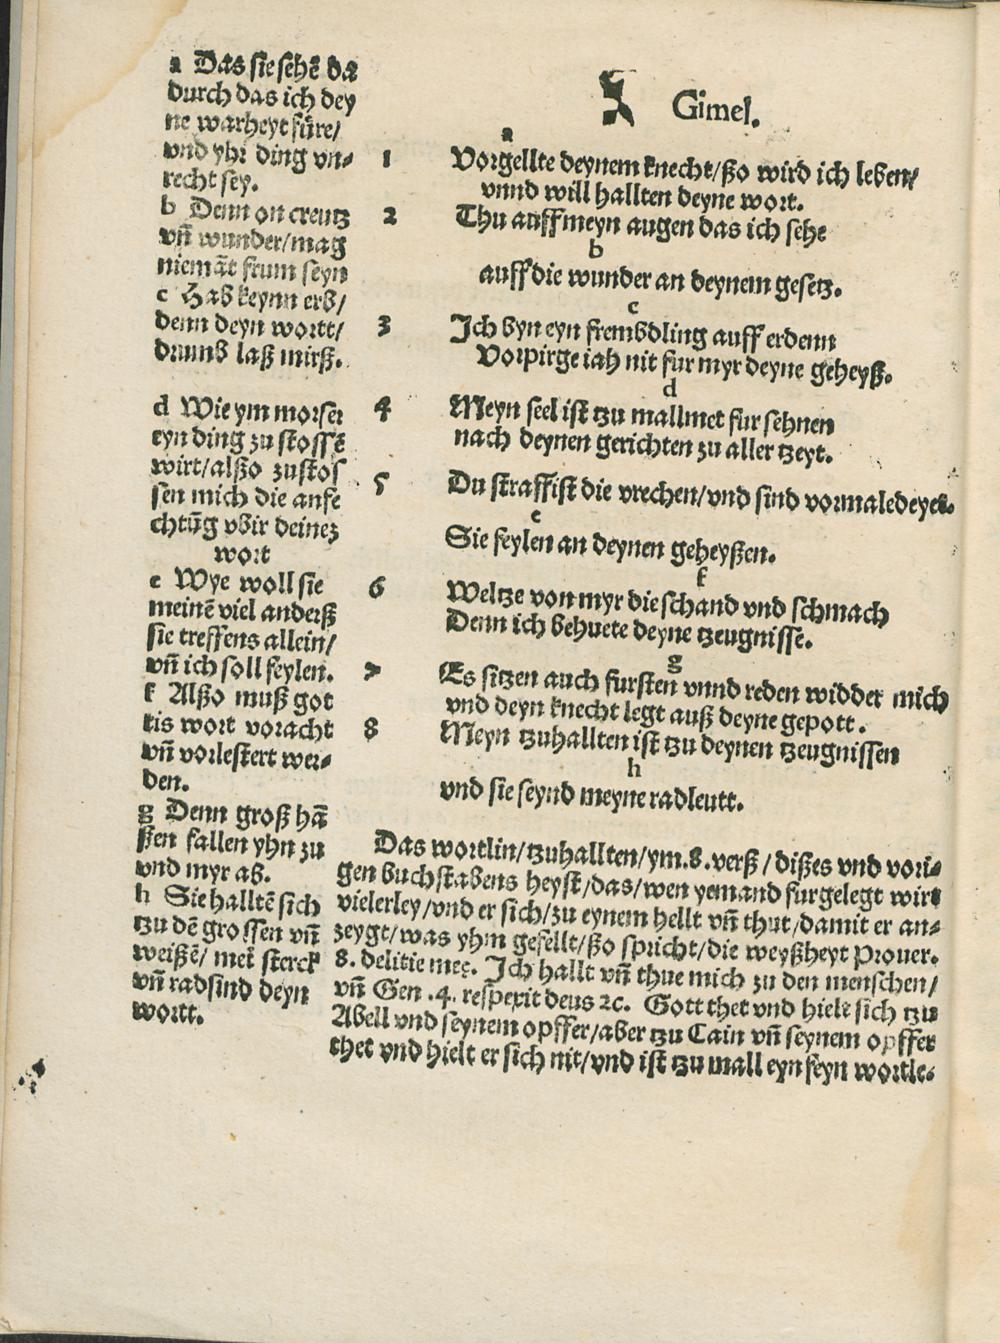 ג Gimel.
a
1 Vorgellte deynem knecht/ßo wird ich leben/
vnnd will hallten deyne wort.
2 Thu auff meyn augen das ich sehe
b
auff die wunder an deynem gesetz.
c
3 Ich byn eyn frembdling auff erdenn
Vorpirge iah nit fur myr deyne geheyß.
d
4 Meyn seel ist tzu mallmet fur sehnen
nach deynen gerichten zu aller tzeyt.
5 Du straffist die vrechen/vnd sind vormaledeyet.
e
Sie feylen an deynen geheyßen.
f
6 Weltze von myr die schand vnd schmach
Denn ich behuete deyne tzeugnisse.
g
7 Es sitzen auch fursten vnnd reden widder mich
vnd deyn knecht legt auß deyne gepott.
8 Meyn tzuhallten ist tzu deynen tzeugnissen
h
vnd sie seynd meyne radleutt.
a Das sie sehē da
durch das ich dey
ne warheyt fure/
vnd yhr ding vn-
recht sey.
b Denn on creutz
vñ wunder/mag
niemāt frum seyn
c Hab keynn erb/
denn deyn wortt/
drumb laß mirß.
d Wie ym morser
eyn ding zu stossē
wirt/alßo zustos
sen mich die anfe
chtūg vbir deinez
wort
e Wye woll sie
meinē viel anderß
sie treffens allein/
vñ ich soll feylen.
f Alßo muß got
tis wort voracht
vñ vorlestert wer-
den.
g Denn groß hā
ßen fallen yhn zu
vnd myr ab.
h Sie halltē sich
tzu dē grossen vñ
weißē/ mei sterck
vñ rad sind deyn
wortt.
Das wortlin/tzuhallten/ym.8.verß/dißes vnd vori-
gen buchstabens heyst/das/wen yemand furgelegt wirt
vielerley/vnd er sich/zu eynem hellt vñ thut/damit er an-
zeygt/was yhm gefellt/ßo spricht/die weyßheyt Prouer.
8. delitie mee. Ich hallt vñ thue mich zu den menschen/
vñ Gen .4. respexit deus ꝛc. Gott thet vnd hielt sich tzu
Abell vnd seynem opffer/aber tzu Cain vñ seynem opffer
thet vnd hielt er sich nit/vnd ist tzu mall eyn feyn wortle-